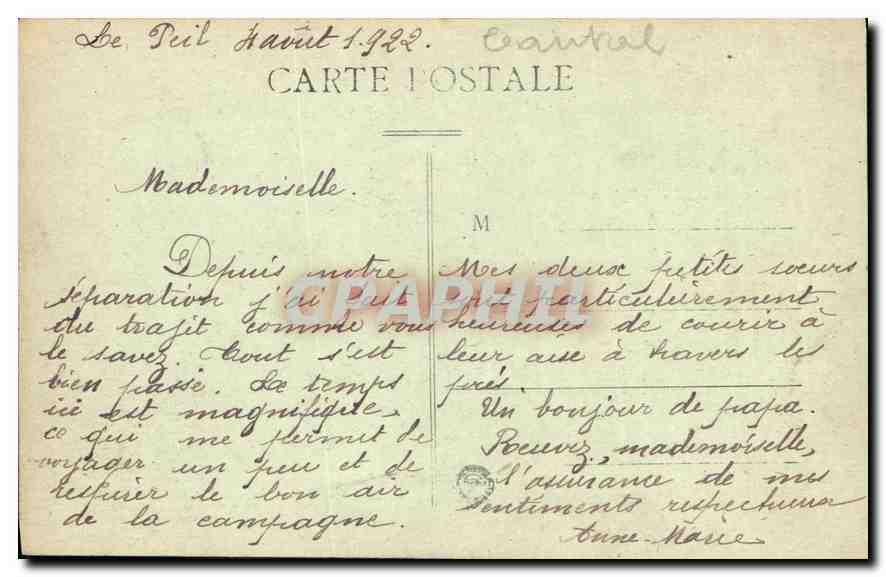 Le Teil 4 août 1.922. Cantal
CARTE POSTALE
Mademoiselle.
M
Depuis notre
séparation j'ai fait
du trajit comme vous
le savez. Tout s'est
bien passé. Le temps
ici est magnifique,
ce qui me permet de
voyager un peu et de
respirer le bon air
de la campagne.
Mes deux petites soeurs
sont particulièrement
heureuses de courir à
leur aise à travers les
prés.
Un bonjour de papa.
Recevez, mademoiselle,
l'assurance de mes
sentiments respectueux
Anne-Marie
CPAPHIL